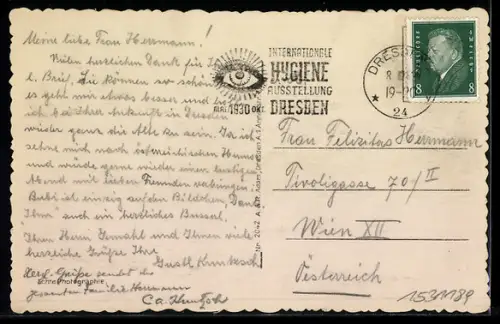 Meine liebe Frau Herrmann!
Vielen herzlichen Dank für
l. Brief. Sie können so schön
es geht mir etwas besser und
ich bei Ihrer Ankunft in Dresden
wieder ganz die Alte zu sein. Ja ich
sehne mich nach österreichischem Humor
und würde gerne wieder einen lustigen
Abend mit lieben Freunden verbringen.
Bubi ist einzig auf den Bildchen, Dank
Ihm" auch ein herzliches Busserl,
Ihrem Herrn Gemahl und Ihnen viele
herzliche Grüße Ihre
Gustl
Herzl. Grüße sendet der
gesamten Familie Herrmann
Echte Photographie
Nr. 2042
INTERNATIONALE
HYGIENE
AUSSTELLUNG
MAI 1930 OKT. DRESDEN
DRESDEN
19-20
24
DEUTSCHES REICH
8 8
Frau Felizitas Herrmann
Tivoligasse 70/II
Wien XII
Österreich
1531189